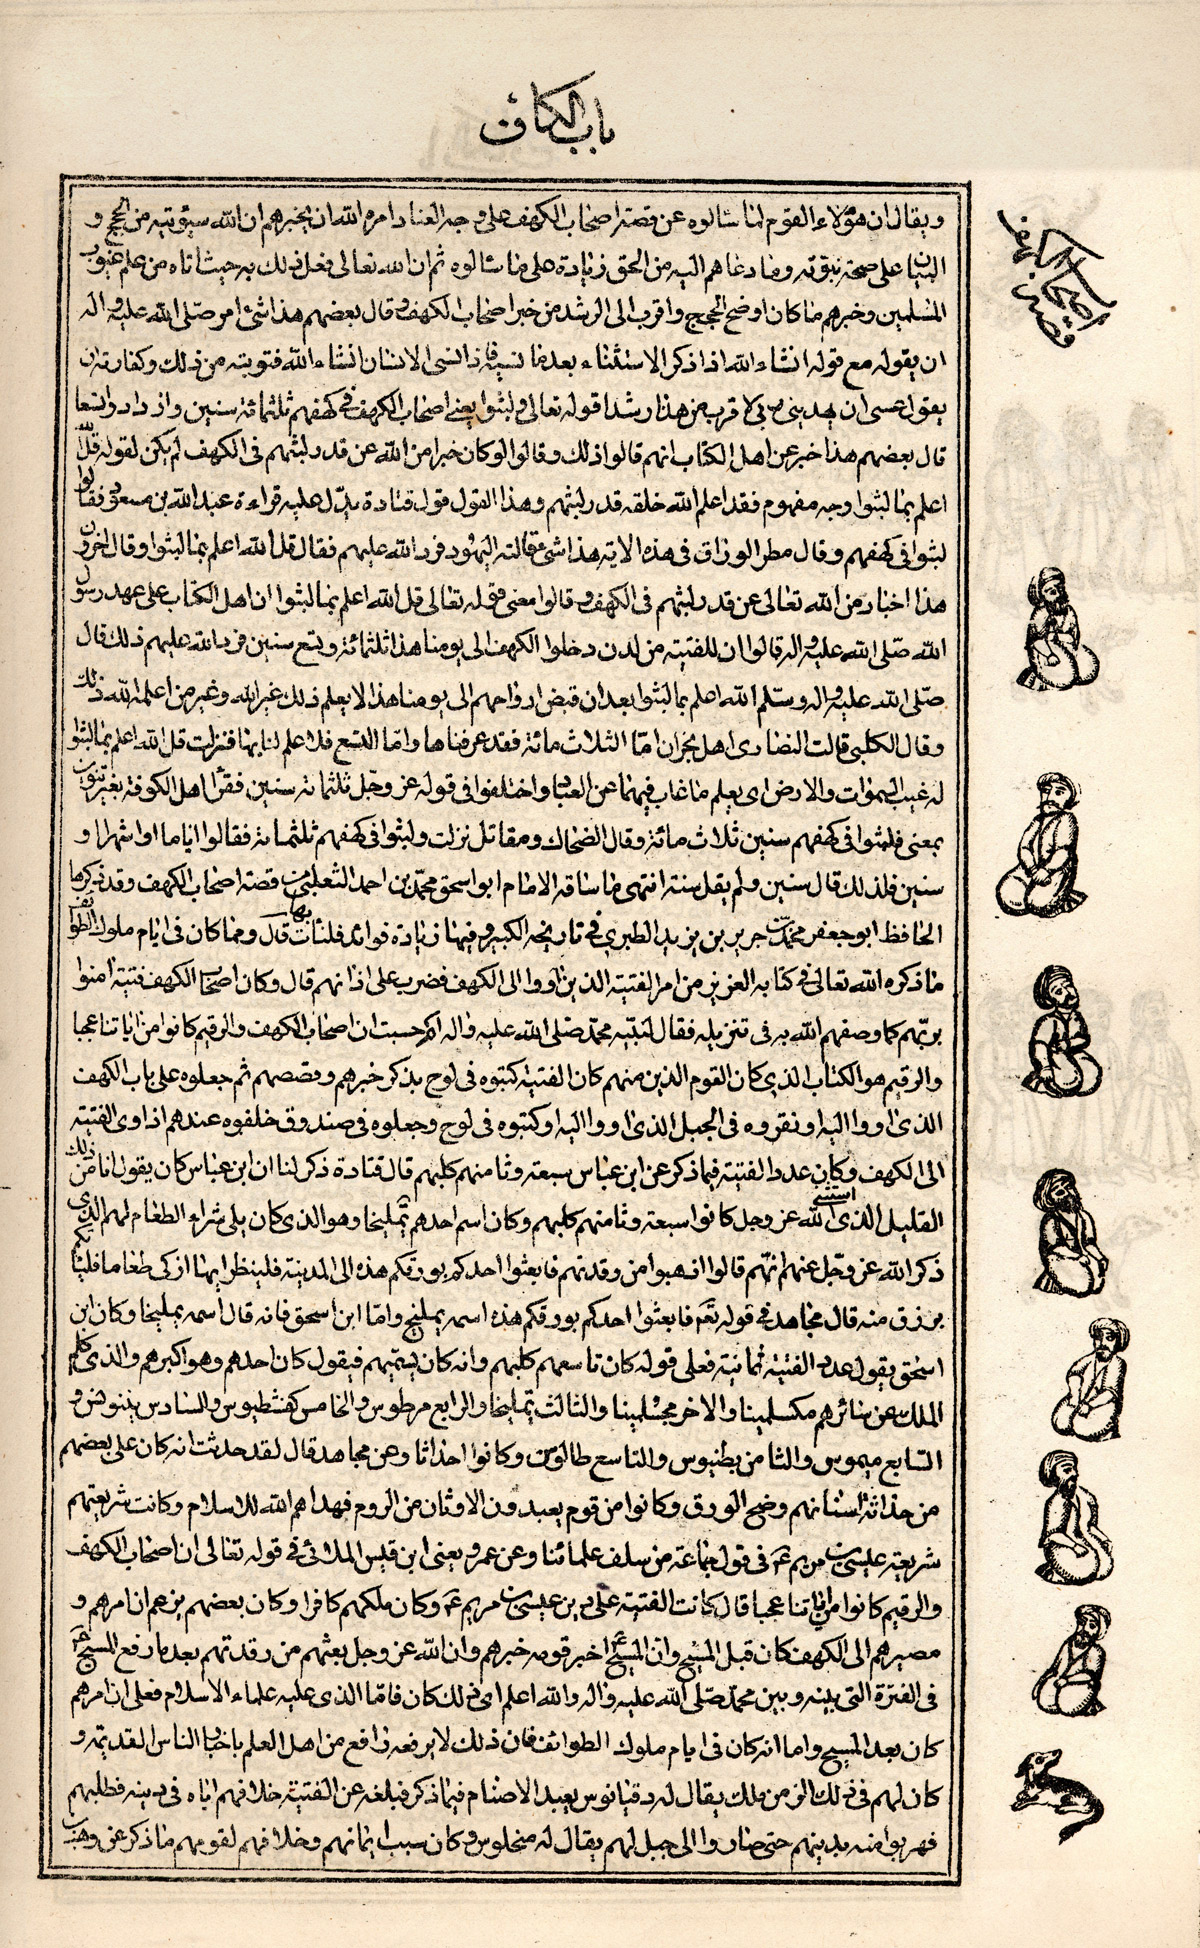 باب الكاف
قصة اصحاب الكهف
ويقال ان هؤلاء القوم لما سالوه عن قصة اصحاب الكهف على وجه العناد امره الله ان يخبرهم ان الله سيؤتيه من الحجج و
البيان على صحة نبوته وما دعاهم اليه من الحق زيادة على ما سالوه ثم ان الله تعالى فعل ذلك به حيث اتاه من علم غيوب
المسلمين وخبرهم ما كان اوضح الحجج واقرب الى الرشد من خبر اصحاب الكهف وقال بعضهم هذا شئ امر صلى الله عليه واله
ان يقوله مع قوله انشاء الله اذا ذكر الاستثناء بعد ما نسيه فاذا نسى الانسان انشاء الله فتوبته من ذلك وكفارته ان
يقول عسى ان يهديني ربي لاقرب من هذا رشدا قوله تعالى ولبثوا يعنى اصحاب الكهف في كهفهم ثلثمائة سنين وازدادوا تسعا
قال بعضهم هذا خبر عن اهل الكتاب انهم قالوا ذلك وقالوا لو كان خبرا من الله عن قدر لبثهم في الكهف لم يكن لقوله قل الله
اعلم بما لبثوا وجه مفهوم فقد اعلم الله خلقه قدر لبثهم وهذا القول قول قتادة يدل عليه قراءة عبد الله بن مسعود فقالوا
لبثوا في كهفهم وقال مطر الوراق في هذه الاية هذا شئ قالته اليهود فرد الله عليهم فقال قل الله اعلم بما لبثوا وقال اخرون
هذا اخبار من الله تعالى عن قدر لبثهم في الكهف وقالوا معنى قوله تعالى قل الله اعلم بما لبثوا ان اهل الكتاب على عهد رسول
الله صلى الله عليه واله قالوا ان للفتية من لدن دخلوا الكهف الى يومنا هذا ثلثمائة وتسع سنين فرد الله عليهم ذلك قال
صلى الله عليه واله وسلم الله اعلم بما لبثوا بعد ان قبض ارواحهم الى يومنا هذا لا يعلم ذلك غير الله وغير من اعلمه الله ذلك
وقال الكلبي قالت النصارى اهل نجران اما الثلاث مائة فقد عرفناها واما التسع فلا علم لنا بها فنزلت قل الله اعلم بما لبثوا
له غيب السموات والارض اى يعلم ما غاب فيهما عن العباد واختلفوا في قوله عز وجل ثلثمائة سنين فقرأ اهل الكوفة بغير تنوين
بمعنى فلبثوا في كهفهم سنين ثلاث مائة وقال الضحاك ومقاتل نزلت ولبثوا في كهفهم ثلثمائة فقالوا اياما او اشهرا او
سنين فلذلك قال سنين ولم يقل سنة انتهى ما ساقه الامام ابو اسحق محمد بن احمد الثعلبي من قصة اصحاب الكهف وقد ذكرها
الحافظ ابو جعفر محمد بن جرير بن يزيد الطبري في تاريخه الكبير وفيها زيادة فوائد فلنأت بها قال ومما كان في ايام ملوك الطوائف
ما ذكره الله تعالى في كتابه العزيز من امر الفتية الذين اووا الى الكهف فضرب على اذانهم قال وكان اصحاب الكهف فتية امنوا
بربهم كما وصفهم الله به في تنزيله فقال لنبيه محمد صلى الله عليه واله ام حسبت ان اصحاب الكهف والرقيم كانوا من اياتنا عجبا
والرقيم هو الكتاب الذي كان القوم الذين منهم كان الفتية كتبوه في لوح بذكر خبرهم وقصصهم ثم جعلوه على باب الكهف
الذى اووا اليه او نقروه في الجبل الذى اووا اليه او كتبوه في لوح وجعلوه في صندوق خلفوه عندهم اذ اوى الفتية
الى الكهف وكان عدد الفتية فيما ذكر عن ابن عباس سبعة وثامنهم كلبهم قال قتادة ذكر لنا ان ابن عباس كان يقول انا من ذلك
القليل الذى استثنى الله عز وجل كانوا سبعة وثامنهم كلبهم وكان اسم احدهم تمليخا وهو الذى كان يلى شراء الطعام لهم الذى
ذكر الله عز وجل عنهم انهم قالوا اذ هبوا من رقدتهم فابعثوا احدكم بورقكم هذه الى المدينة فلينظر ايها ازكى طعاما فلياتكم
برزق منه قال مجاهد في قوله تع فابعثوا احدكم بورقكم هذه اسمه يمليخ واما ابن اسحق فانه قال اسمه يمليخا وكان ابن
اسحق يقول عدد الفتية ثمانية فعلى قوله كان تاسعهم كلبهم وانه كان يسميهم فيقول كان احدهم وهو اكبرهم والذى كلم
الملك عن سائرهم مكسلمينا والاخر محسلمينا والثالث يمليخا والرابع مرطوس والخامس كفشطيوس والسادس بينونس و
السابع ميموس والثامن بطنيوس والتاسع طالوس وكانوا احداثا وعن مجاهد قال لقد حدثت انه كان على بعضهم
من حداثة اسنانهم وضح الورق وكانوا من قوم يعبدون الاوثان من الروم فهداهم الله للاسلام وكانت شريعتهم
شريعة عيسى بن مريم ع م في قول جماعة من سلف علمائنا وعن عمرو يعنى ابن قيس الملائي في قوله تعالى ان اصحاب الكهف
والرقيم كانوا من اياتنا عجبا قال كانت الفتية على دين عيسى بن مريم ع م وكان ملكهم كافرا وكان بعضهم يزعم ان امرهم و
مصيرهم الى الكهف كان قبل المسيح وان المسيح ع م اخبر قومه خبرهم وان الله عز وجل بعثهم من رقدتهم بعد ما رفع المسيح ع م
في الفترة التى بينه وبين محمد صلى الله عليه واله والله اعلم اى ذلك كان فاما الذى عليه علماء الاسلام فعلى ان امرهم
كان بعد المسيح واما انه كان في ايام ملوك الطوائف فان ذلك لا يرفعه رافع من اهل العلم باخبار الناس القديمة و
كان لهم في ذلك الزمن ملك يقال له دقيانوس يعبد الاصنام فيما ذكر فبلغه عن الفتية خلافهم اياه في دينه فطلبهم
فهربوا منه بدينهم حتى صاروا الى جبل لهم يقال له منحلوس وكان سبب ايمانهم وخلافهم لقومهم ما ذكر عن وهب